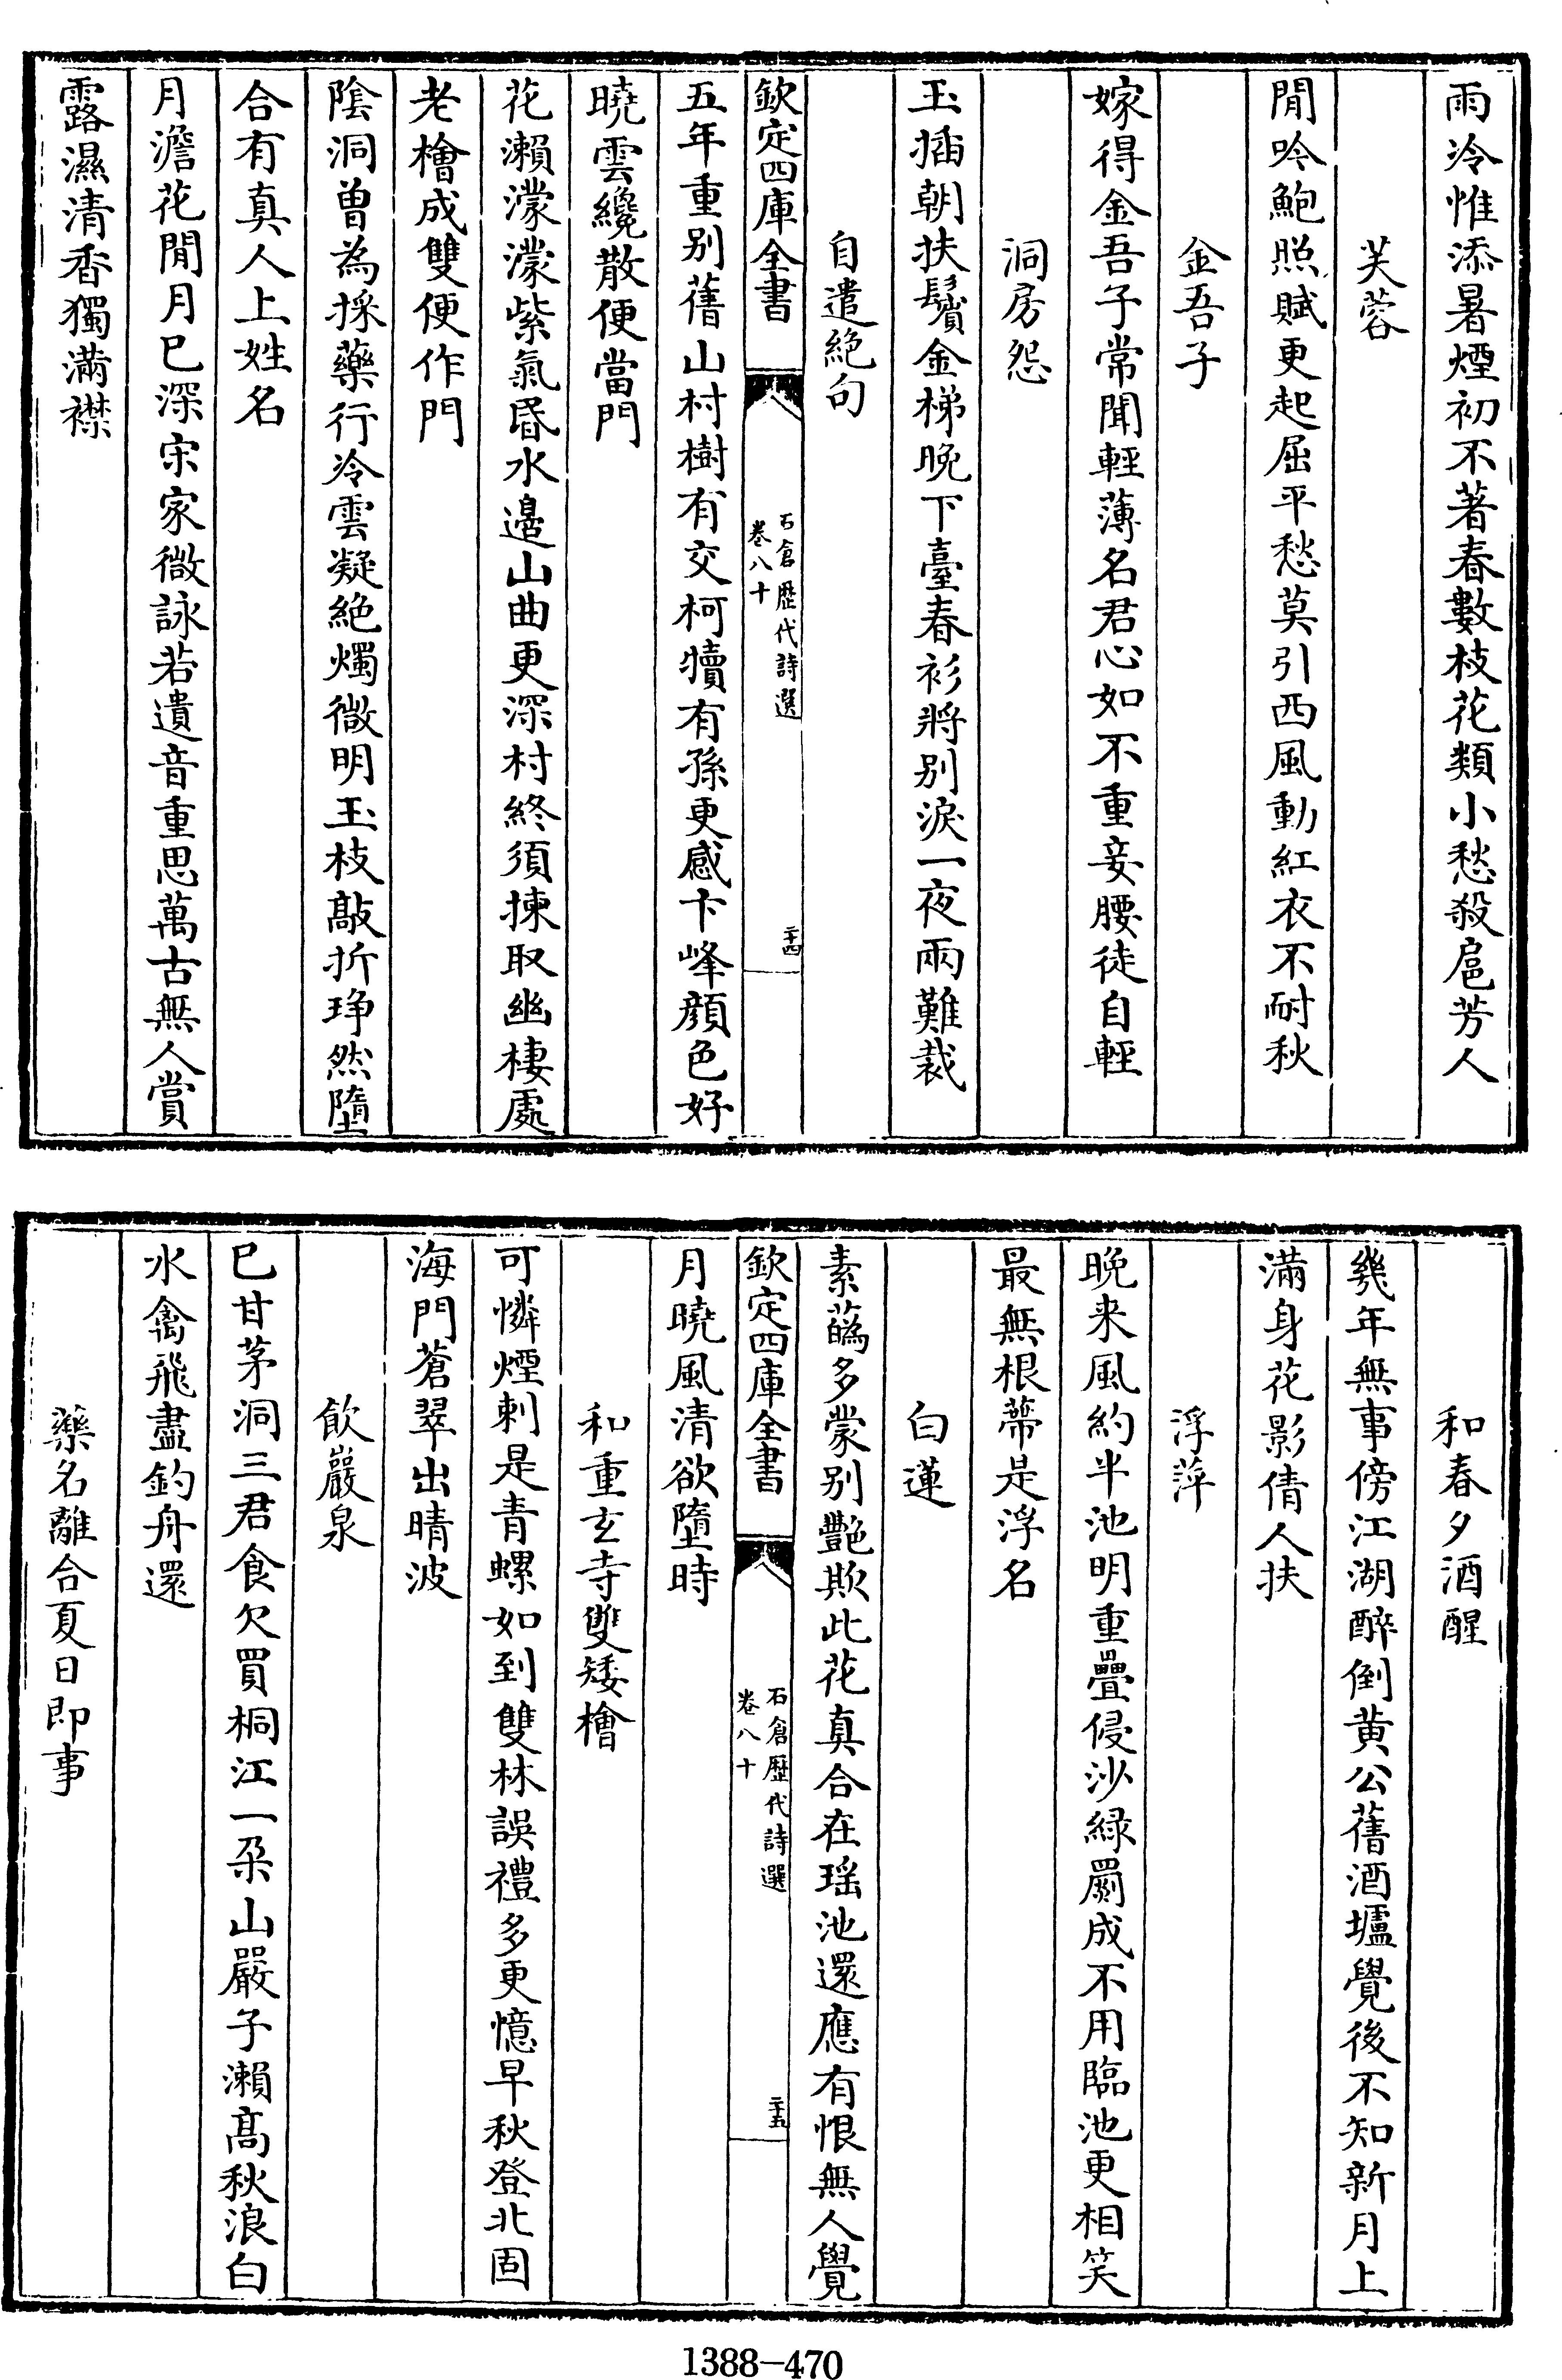 雨冷惟添暑煙初不著春數枝花類小愁殺扈芳人
芙蓉
閒吟鮑照賦更起屈平愁莫引西風動紅衣不耐秋
金吾子
嫁得金吾子常聞輕薄名君心如不重妾腰徒自輕
洞房怨
玉插朝扶鬢金梯晚下臺春衫將别淚一夜兩難裁
自遣絶句
欽定四庫全書
石倉歴代詩選
卷八十
二十四
五年重别舊山村樹有交柯犢有孫更感卞峰顔色好
曉雲纔散便當門
花瀨濛濛紫氣昏水邊山曲更深村終須揀取幽棲處
老檜成雙便作門
隂洞曾為採藥行冷雲凝絶燭微明玉枝敲折琤然墮
合有真人上姓名
月澹花閒月巳深宋家微詠若遺音重思萬古無人賞
露濕清香獨滿襟
和春夕酒醒
幾年無事傍江湖醉倒黄公舊酒壚覺後不知新月上
滿身花影倩人扶
浮萍
晚来風約半池明重疊侵沙緑罽成不用臨池更相笑
最無根蔕是浮名
白蓮
素蘤多蒙别艷欺此花真合在瑶池還應有恨無人覺
欽定四庫全書
石倉歴代詩選
卷八十
二十五
月曉風清欲墮時
和重玄寺雙矮檜
可憐煙刺是青螺如到雙林誤禮多更憶早秋登北固
海門蒼翠出晴波
飲巖泉
巳甘茅洞三君食欠買桐江一朶山嚴子瀨髙秋浪白
水禽飛盡釣舟還
藥名離合夏日即事
1388-470